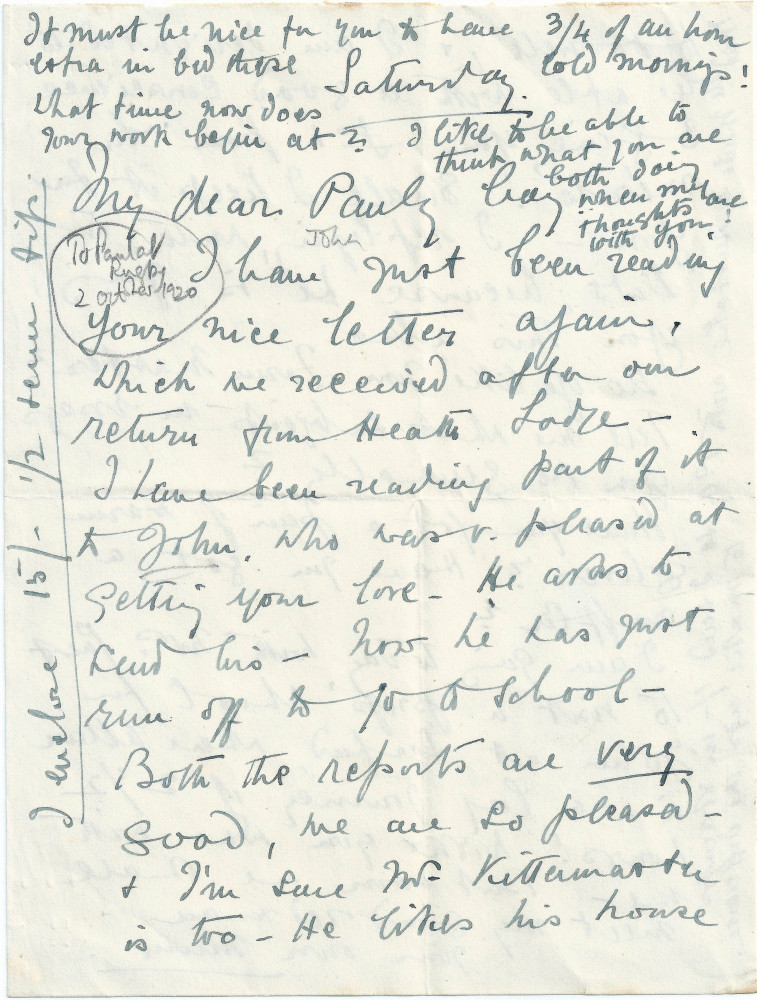 It must be nice for you to have 3/4 of an hour
extra in bed these cold mornings!
Saturday.
What time now does
your work begin at? I like to be able to
think what you are
both doing
when my
thoughts are
with you!
My dear Pauly boy
John
To Paul at
Rugby
2 Oct 1920
I have just been reading
your nice letter again,
which we received after our
return from Heath Lodge –
I have been reading part of it
to John, who was v. pleased at
getting your love – He asks to
send his – now he has just
run off to go to school –
Both the reports are very
good, we are so pleased –
+ I'm sure Mr Kittermaster
is too – He likes his house
I enclose 15/- 1/2 term tip.